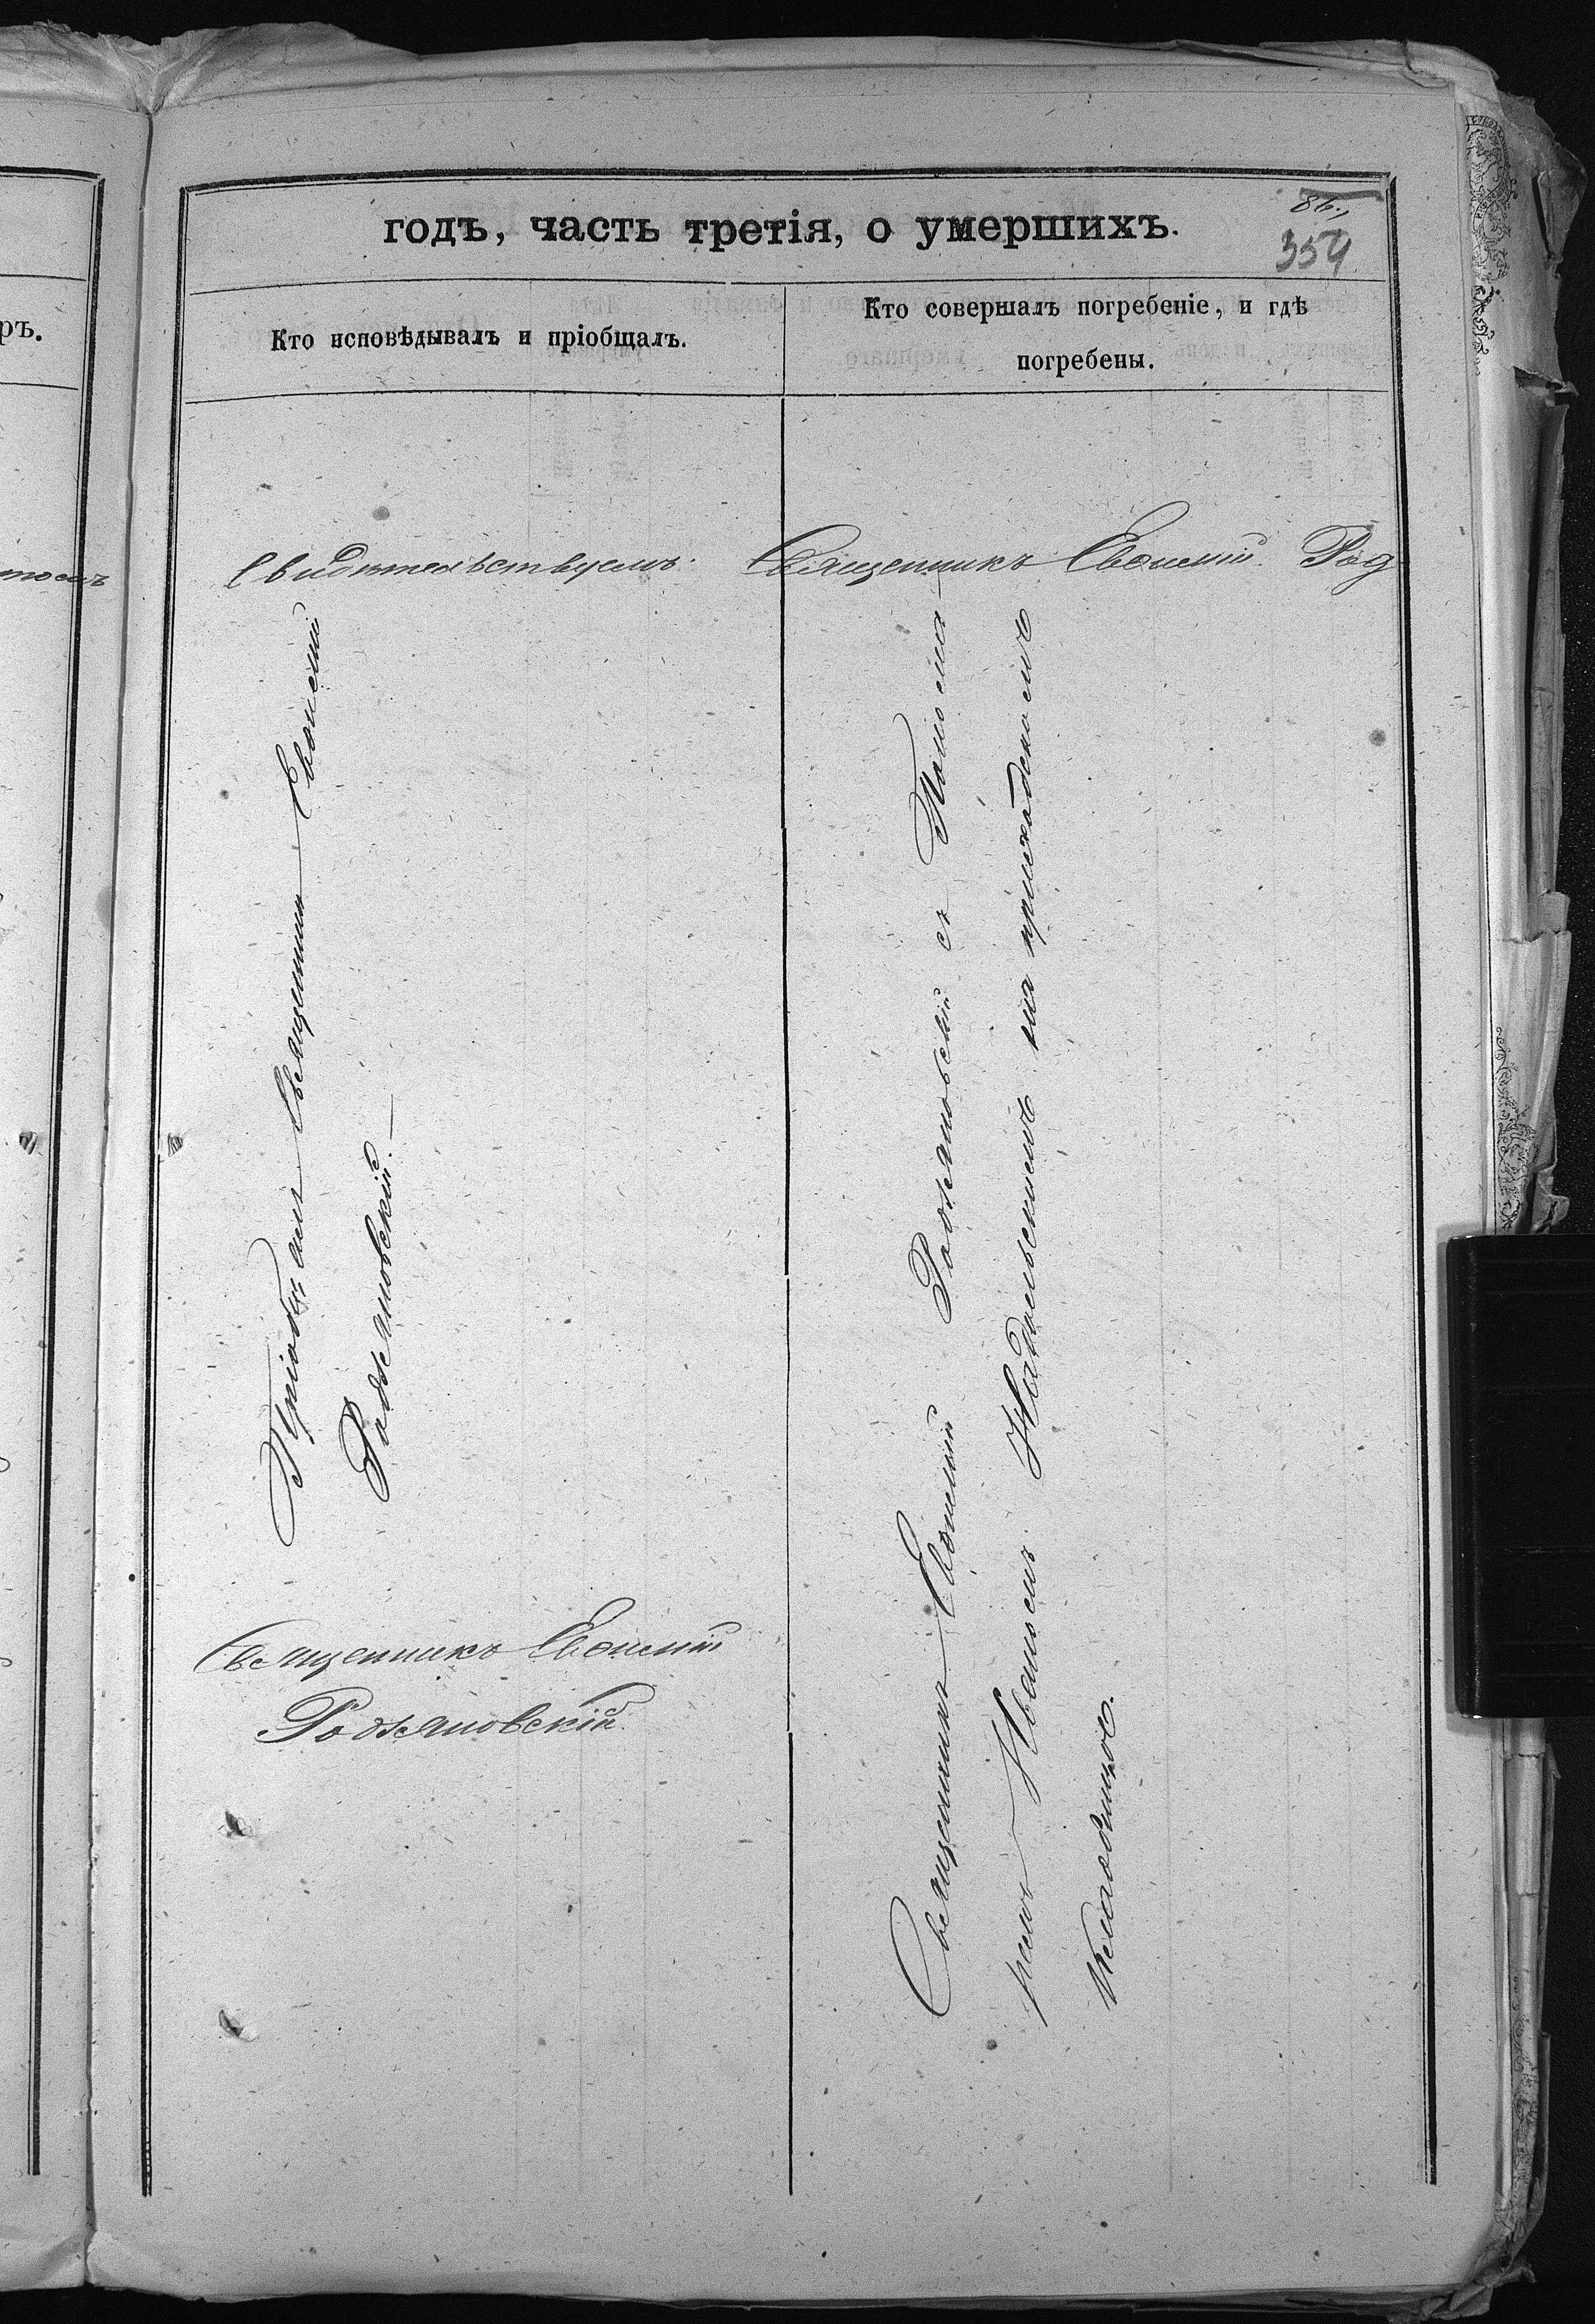 годъ, часть третія, о умершихъ.
354
ръ.
Кто исповѣдывалъ и пріобщалъ.
Кто совершалъ погребеніе, и гдѣ
погребены.
Свидѣтельствуемъ: Священникъ Евѳимій Род
Священникъ Евѳимій
Родзяновскій.
Священникъ Евѳимій
Родзяновскій.
Священникъ Евѳимій Родзяновскій съ
Иваномъ на приходскомъ
кладбищѣ.